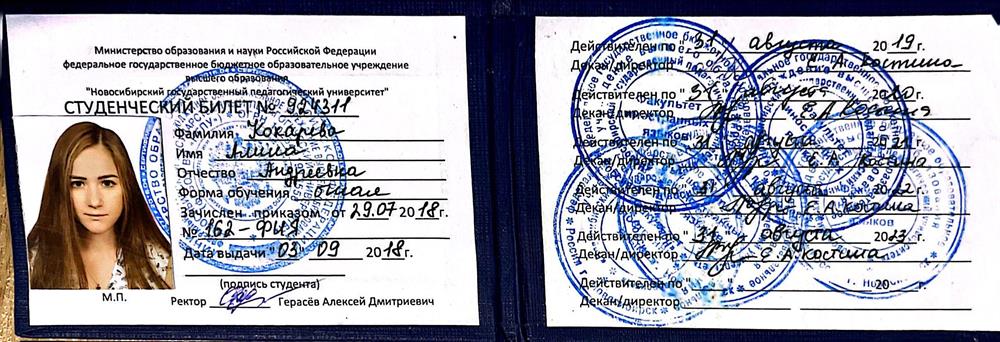 Министерство образования и науки Российской Федерации
федеральное государственное бюджетное образовательное учреждение
высшего образования
"Новосибирский государственный педагогический университет"
СТУДЕНЧЕСКИЙ БИЛЕТ № 924311
Фамилия Кокарева
Имя Алина
Отчество Андреевна
Форма обучения очная
Зачислен приказом от 29.07 2018г.
№ 162-ФИЯ
Дата выдачи "03" 09 2018г.
(подпись студента)
М.П.
Ректор Герасёв Алексей Дмитриевич
Действителен по "31" августа 2019 г.
Декан/директор Е.А. Костина
Действителен по "31" августа 2020 г.
Декан/директор Е.А. Костина
Действителен по "31" августа 2021 г.
Декан/директор Е.А. Костина
Действителен по "31" августа 2022 г.
Декан/директор Е.А. Костина
Действителен по "31" августа 2023 г.
Декан/директор Е.А. Костина
Действителен по " 20 г.
Декан/директор